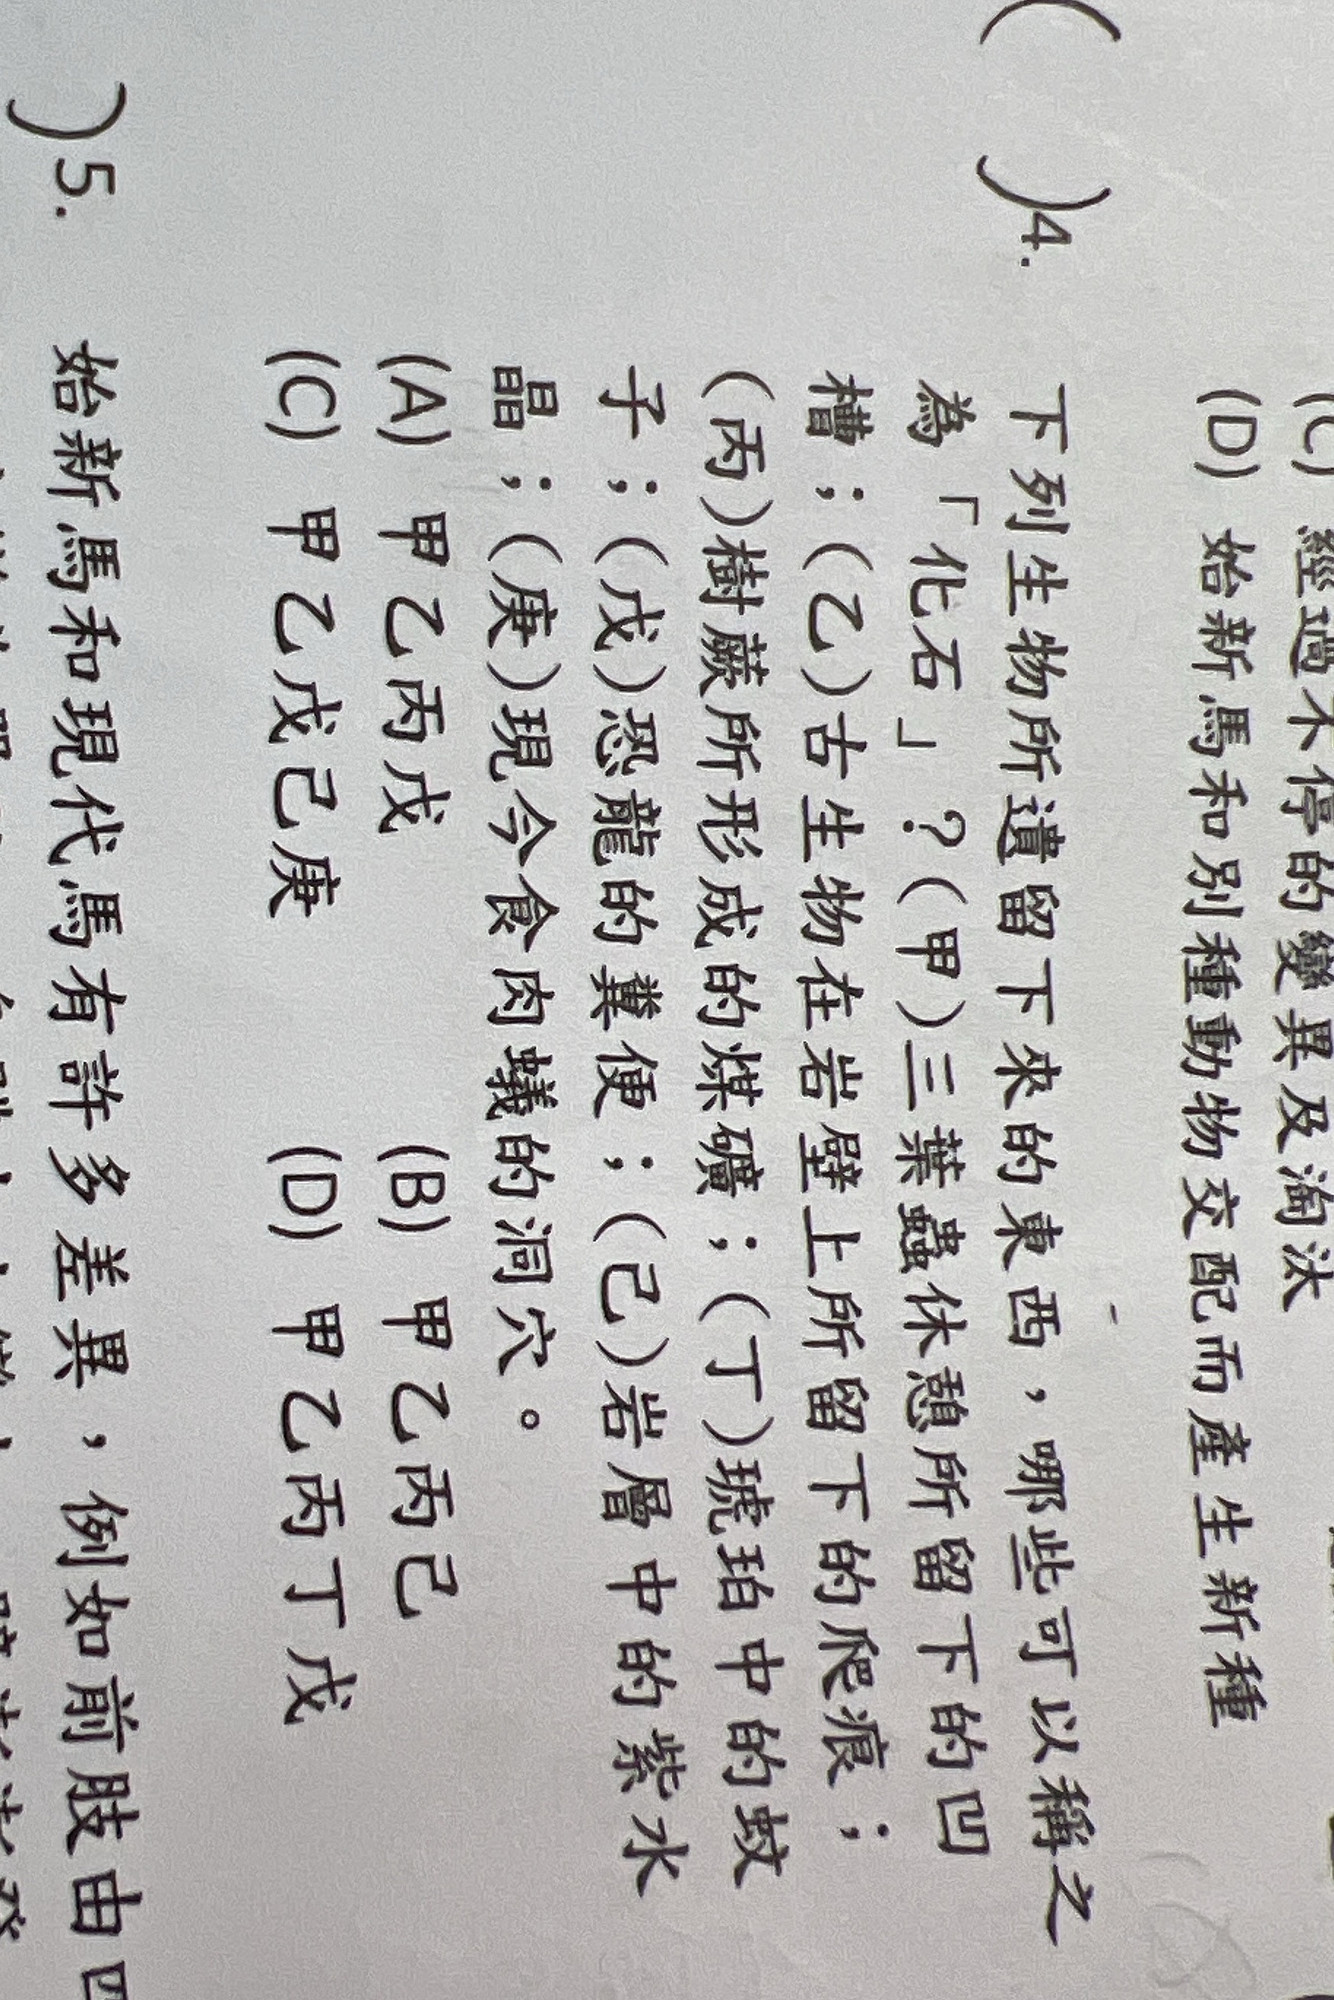 (C) 經過不停的變異及淘汰
(D) 始新馬和別種動物交配而產生新種
( )4. 下列生物所遺留下來的東西，哪些可以稱之
為「化石」？(甲)三葉蟲休憩所留下的凹
槽；(乙)古生物在岩壁上所留下的爬痕；
(丙)樹蕨所形成的煤礦；(丁)琥珀中的蚊
子；(戊)恐龍的糞便；(己)岩層中的紫水
晶；(庚)現今食肉蟻的洞穴。
(A) 甲乙丙戊 (B) 甲乙丙己
(C) 甲乙戊己庚 (D) 甲乙丙丁戊
)5. 始新馬和現代馬有許多差異，例如前肢由四